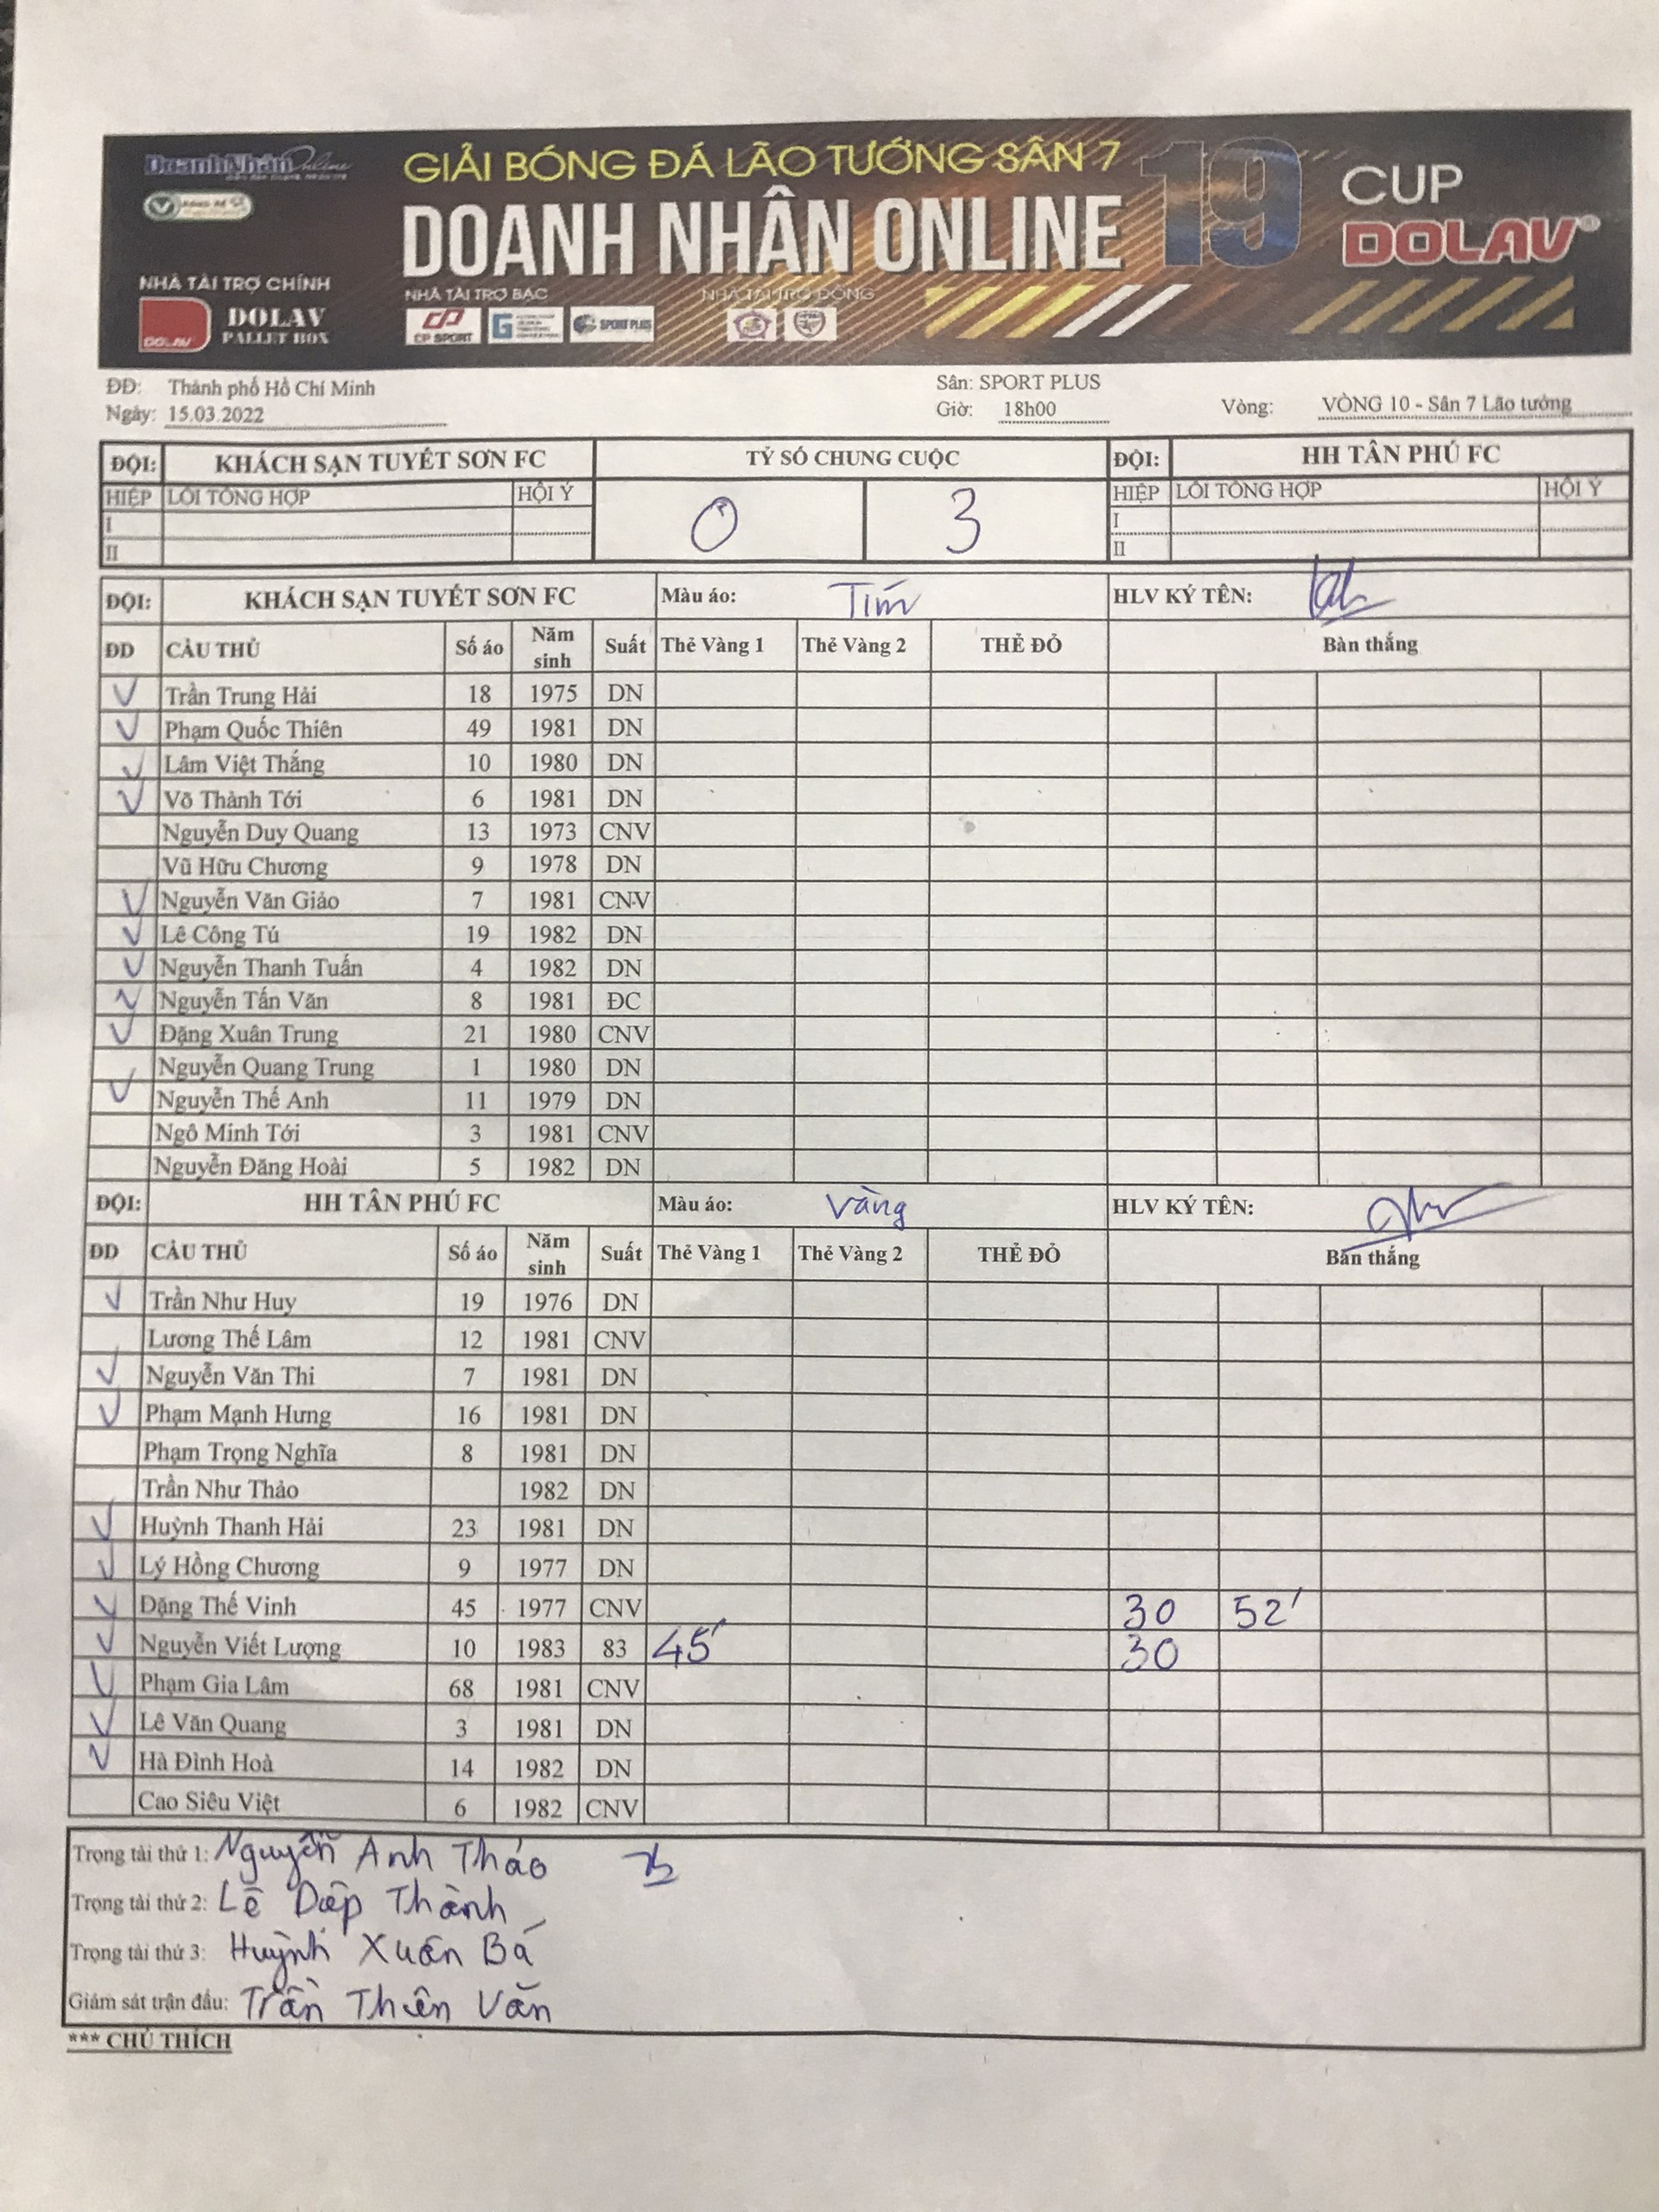 DoanhNhân Online
GIẢI BÓNG ĐÁ LÃO TƯỚNG SÂN 7
DOANH NHÂN ONLINE 19
CUP
DOLAV®
NHÀ TÀI TRỢ CHÍNH
DOLAV
DOLAV
PALLET BOX
NHÀ TÀI TRỢ BẠC
NHÀ TÀI TRỢ ĐỒNG
CP SPORT
SPORT PLUS
ĐĐ: Thành phố Hồ Chí Minh Sân: SPORT PLUS
Ngày: 15.03.2022 Giờ: 18h00 Vòng: VÒNG 10 - Sân 7 Lão tướng
ĐỘI: KHÁCH SẠN TUYẾT SƠN FC TỶ SỐ CHUNG CUỘC ĐỘI: HH TÂN PHÚ FC
HIỆP LỖI TỔNG HỢP HỘI Ý 0 3 HIỆP LỖI TỔNG HỢP HỘI Ý
I I
II II
ĐỘI: KHÁCH SẠN TUYẾT SƠN FC Màu áo: Tím HLV KÝ TÊN:
ĐD CẦU THỦ Số áo Năm sinh Suất Thẻ Vàng 1 Thẻ Vàng 2 THẺ ĐỎ Bàn thắng
Trần Trung Hải 18 1975 DN
Phạm Quốc Thiên 49 1981 DN
Lâm Việt Thắng 10 1980 DN
Võ Thành Tới 6 1981 DN
Nguyễn Duy Quang 13 1973 CNV
Vũ Hữu Chương 9 1978 DN
Nguyễn Văn Giảo 7 1981 CNV
Lê Công Tú 19 1982 DN
Nguyễn Thanh Tuấn 4 1982 DN
Nguyễn Tấn Văn 8 1981 ĐC
Đặng Xuân Trung 21 1980 CNV
Nguyễn Quang Trung 1 1980 DN
Nguyễn Thế Anh 11 1979 DN
Ngô Minh Tới 3 1981 CNV
Nguyễn Đăng Hoài 5 1982 DN
ĐỘI: HH TÂN PHÚ FC Màu áo: Vàng HLV KÝ TÊN:
ĐD CẦU THỦ Số áo Năm sinh Suất Thẻ Vàng 1 Thẻ Vàng 2 THẺ ĐỎ Bàn thắng
Trần Như Huy 19 1976 DN
Lương Thế Lâm 12 1981 CNV
Nguyễn Văn Thi 7 1981 DN
Phạm Mạnh Hưng 16 1981 DN
Phạm Trọng Nghĩa 8 1981 DN
Trần Như Thảo 1982 DN
Huỳnh Thanh Hải 23 1981 DN
Lý Hồng Chương 9 1977 DN
Đặng Thế Vinh 45 1977 CNV 30 52'
Nguyễn Viết Lượng 10 1983 83 45' 30
Phạm Gia Lâm 68 1981 CNV
Lê Văn Quang 3 1981 DN
Hà Đình Hoà 14 1982 DN
Cao Siêu Việt 6 1982 CNV
Trọng tài thứ 1: Nguyễn Anh Thảo
Trọng tài thứ 2: Lê Diệp Thành
Trọng tài thứ 3: Huỳnh Xuân Bá
Giám sát trận đấu: Trần Thiên Văn
*** CHÚ THÍCH